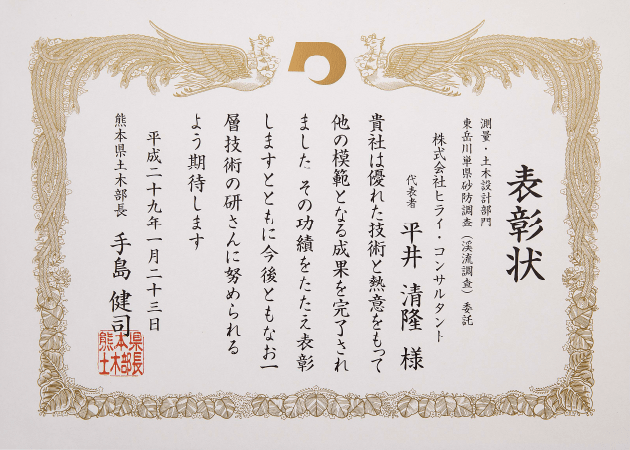 表彰状
測量・土木設計部門
東岳川単県砂防調査（渓流調査）委託
株式会社ヒライ・コンサルタント
代表者 平井 清隆 様
貴社は優れた技術と熱意をもって
他の模範となる成果を完了され
ました その功績をたたえ表彰
しますとともに今後ともなお一
層技術の研さんに努められる
よう期待します
平成二十九年一月二十三日
熊本県土木部長 手島 健司
熊本県
土木部長